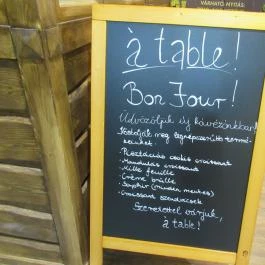 VÁRHATÓ NYITÁS:
à table!
Bon Jour!
Üdvözöljük új kávézónkban!
Kóstolják meg legnépszerűbb termé-
keinket:
- Pisztáciás csokis croissant
- Mandulás croissant
- Mille feuille
- Crème brûlée
- Saphir (minden mentes)
- Croissant szendvicsek
Szeretettel várjuk,
à table!